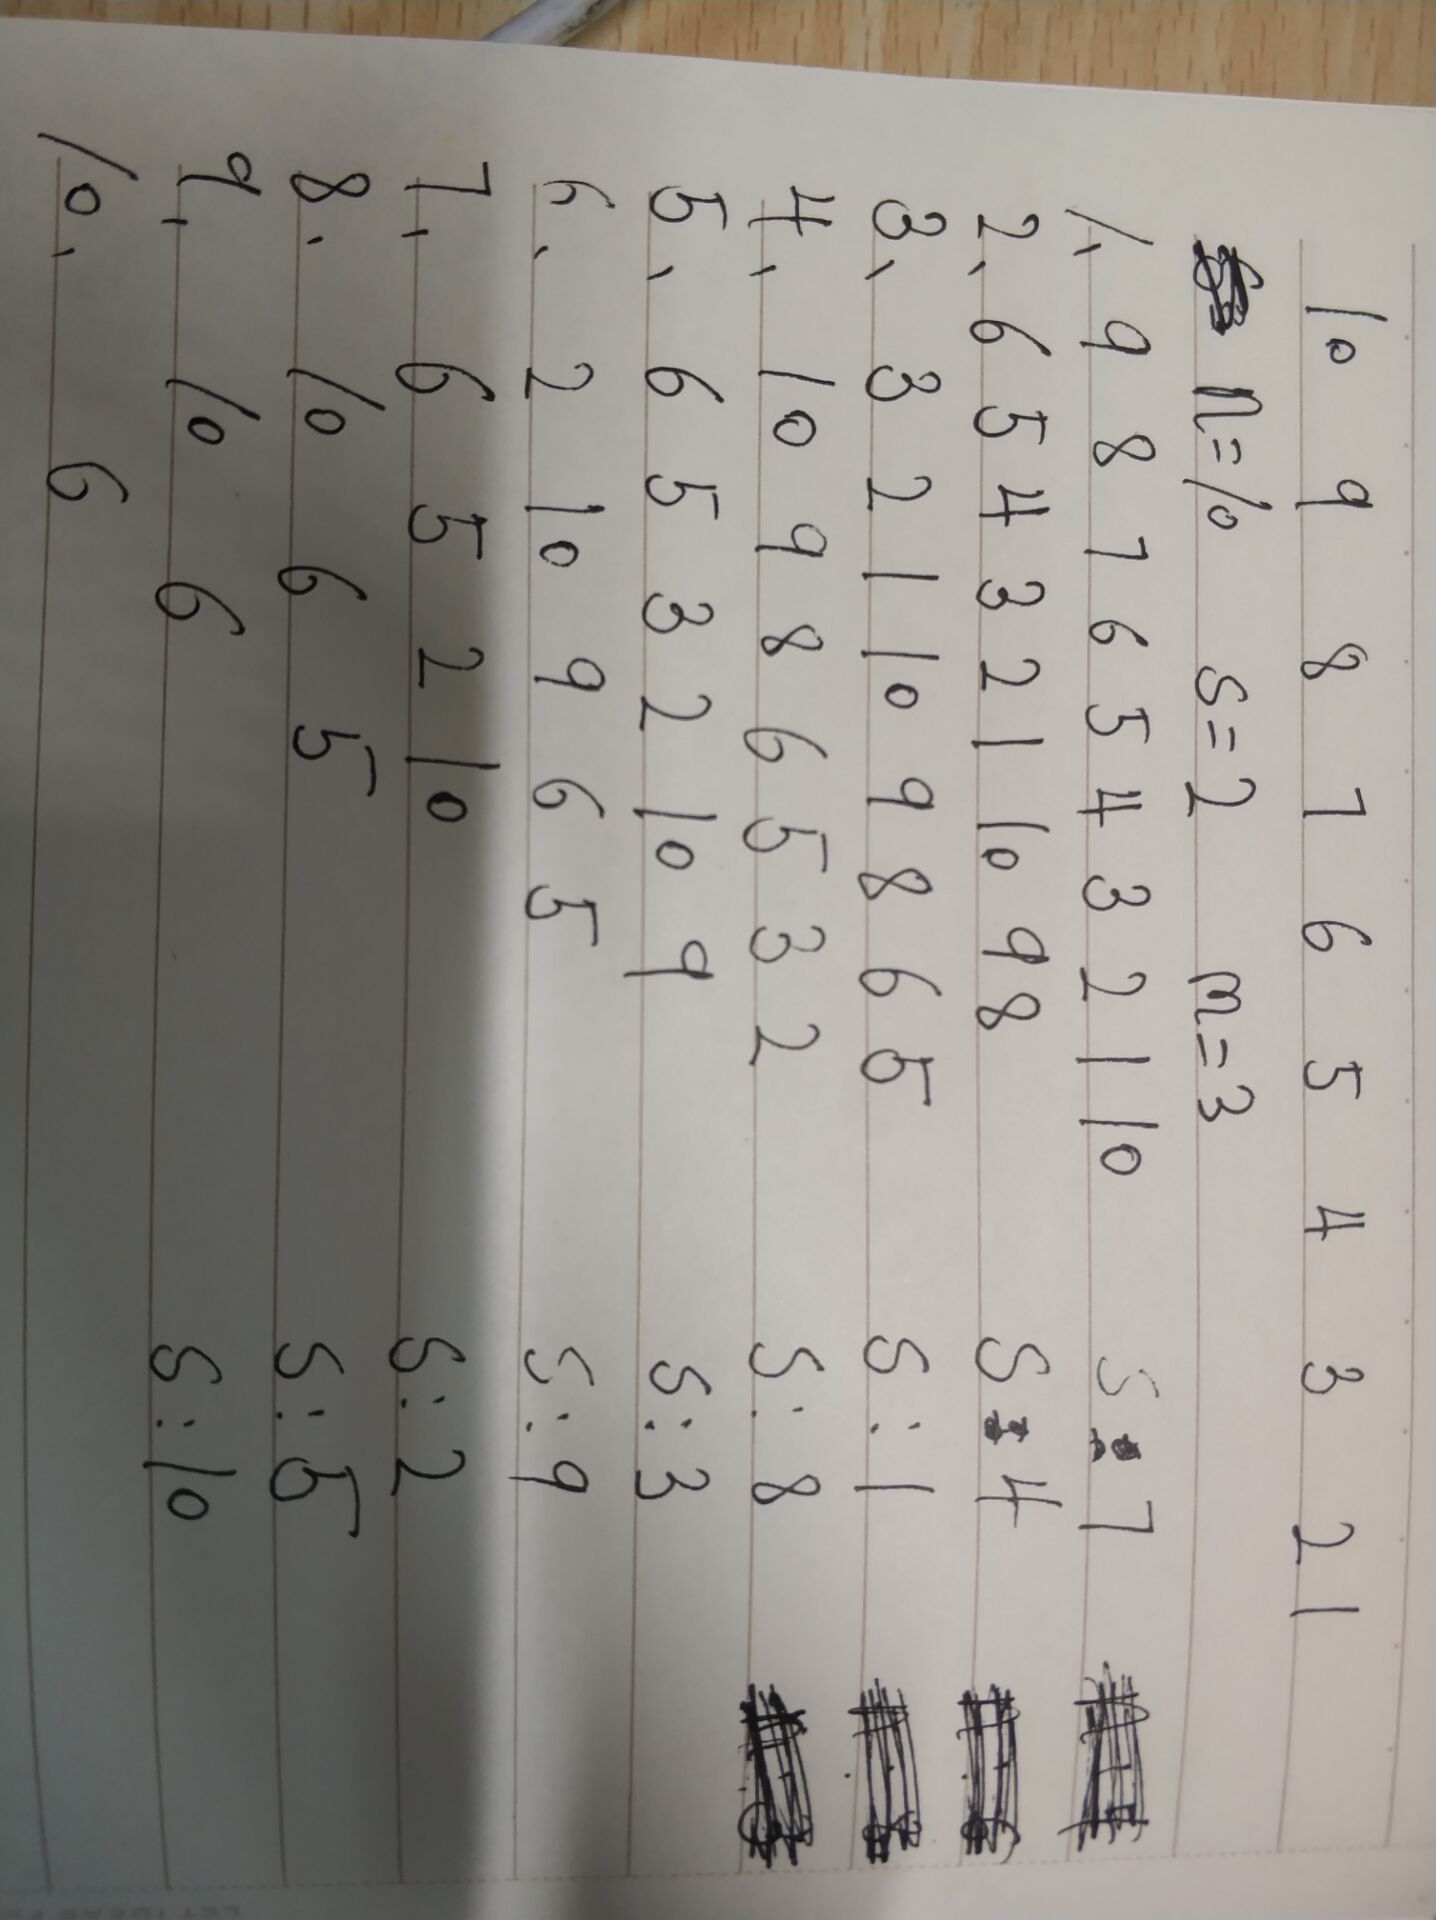 10 9 8 7 6 5 4 3 2 1
n=10 s=2 m=3
1、 9 8 7 6 5 4 3 2 1 10 S:7
2、 6 5 4 3 2 1 10 9 8 S:4
3、 3 2 1 10 9 8 6 5 S:1
4、 10 9 8 6 5 3 2 S:8
5、 6 5 3 2 10 9 S:3
6、 2 10 9 6 5 S:9
7、 6 5 2 10 S:2
8、 10 6 5 S:5
9、 10 6 S:10
10、 6